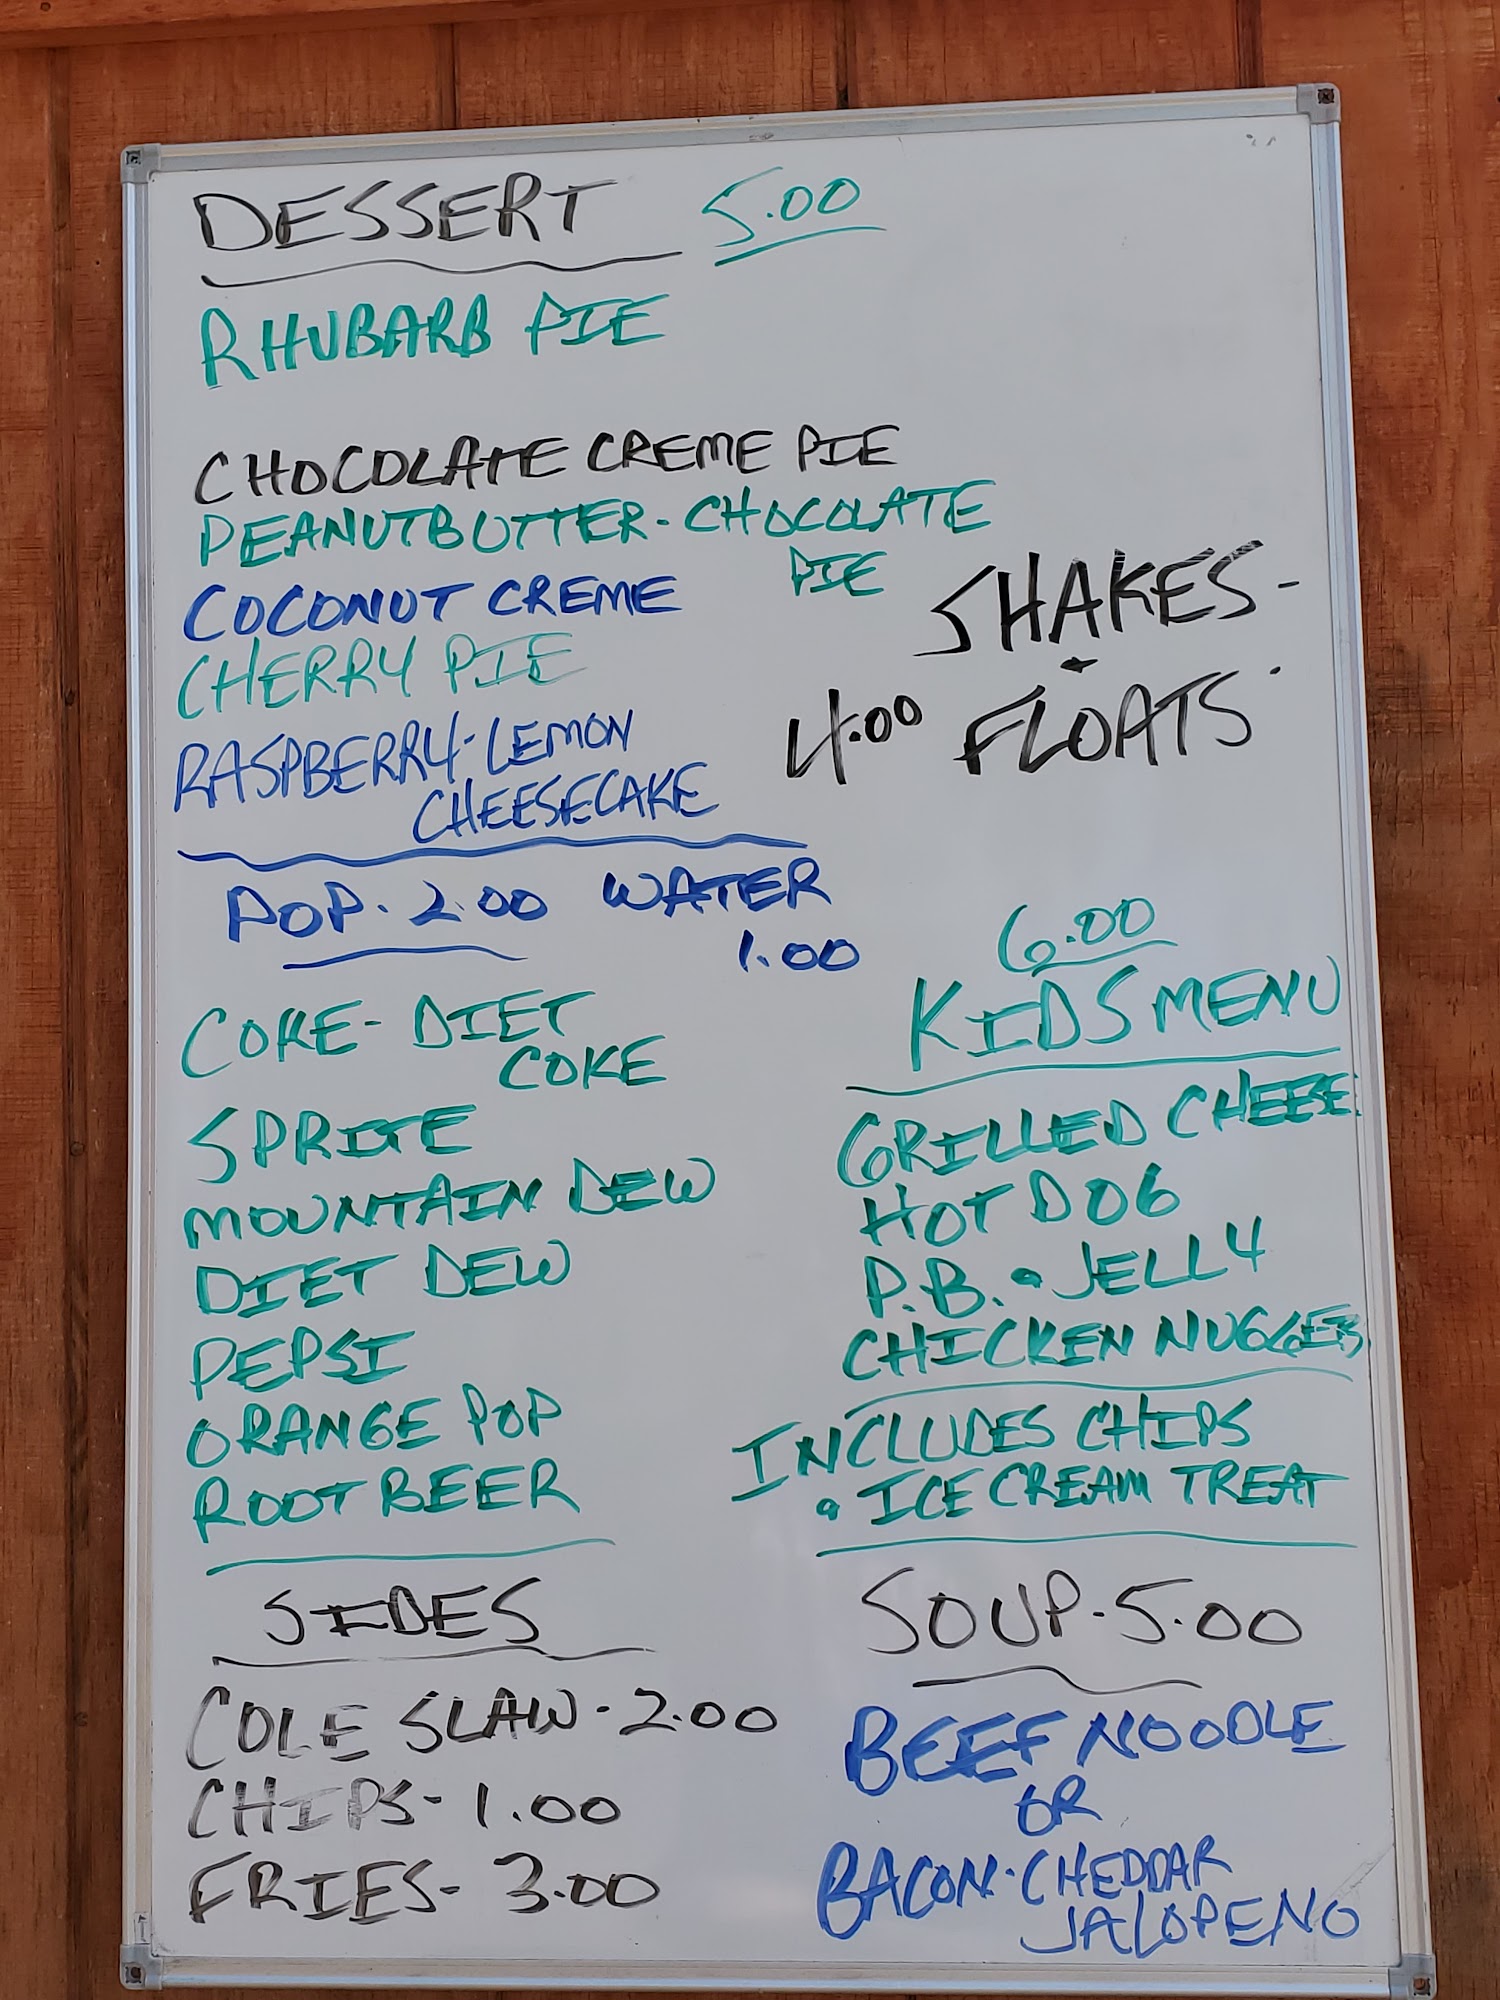 DESSERT 5.00
RHUBARB PIE
CHOCOLATE CREME PIE
PEANUTBUTTER-CHOCOLATE
PIE
COCONUT CREME
CHERRY PIE
RASPBERRY-LEMON
CHEESECAKE
SHAKES-
&
4.00 FLOATS
POP-2.00 WATER
1.00
COKE-DIET
COKE
SPRITE
MOUNTAIN DEW
DIET DEW
PEPSI
ORANGE POP
ROOT BEER
6.00
KIDS MENU
GRILLED CHEESE
HOT DOG
P.B. & JELLY
CHICKEN NUGGETS
INCLUDES CHIPS
& ICE CREAM TREAT
SIDES
COLE SLAW-2.00
CHIPS-1.00
FRIES-3.00
SOUP-5.00
BEEF NOODLE
OR
BACON-CHEDDAR
JALOPENO